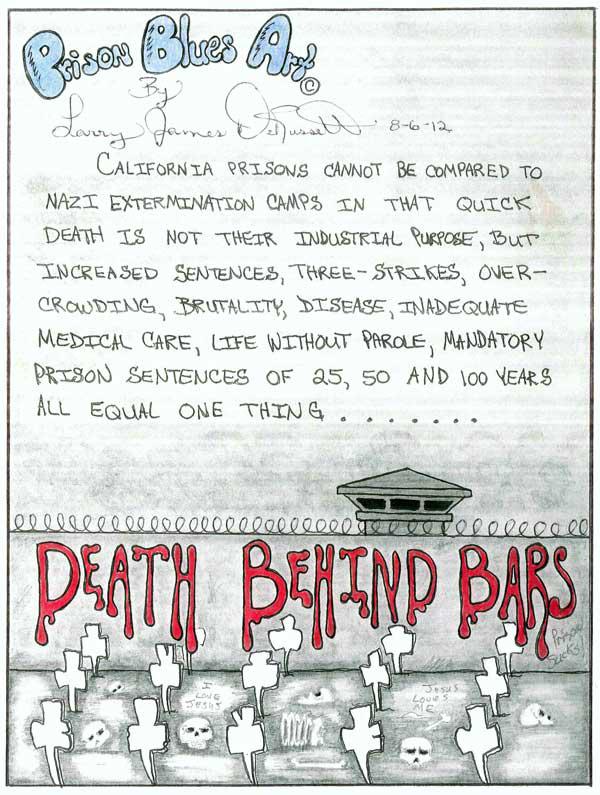 Prison Blues Art ©
By
Larry James DeRusse 8-6-12
CALIFORNIA PRISONS CANNOT BE COMPARED TO
NAZI EXTERMINATION CAMPS IN THAT QUICK
DEATH IS NOT THEIR INDUSTRIAL PURPOSE, BUT
INCREASED SENTENCES, THREE-STRIKES, OVER-
CROWDING, BRUTALITY, DISEASE, INADEQUATE
MEDICAL CARE, LIFE WITHOUT PAROLE, MANDATORY
PRISON SENTENCES OF 25, 50 AND 100 YEARS
ALL EQUAL ONE THING ........
DEATH BEHIND BARS
Prison
Sucks!
I
LOVE
JESUS
JESUS
LOVES
ME